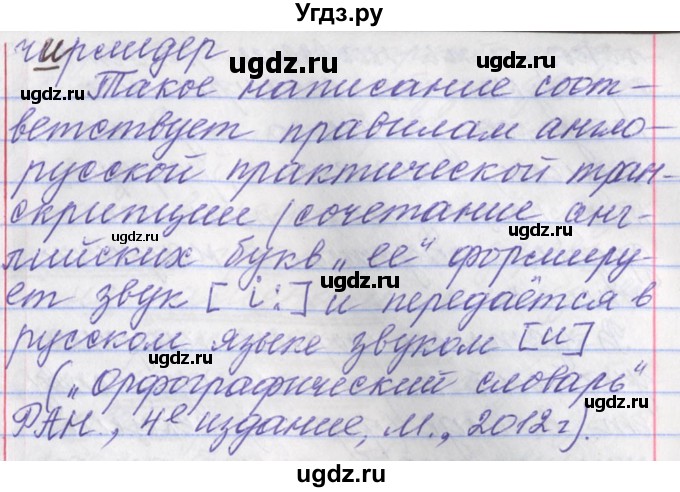 Угдз.ру
чирлидер
ugdz.ru ugdz.ru ugdz.ru
Такое написание соот-
ветствует правилам англо-
русской практической тран-
скрипции (сочетание анг-
ugdz.ru ugdz.ru
лийских букв „ее“ формиру-
ет звук [i:] и передаётся в
русском языке звуком [и]
ugdz.ru ugdz.ru
(„Орфографический словарь“
РАН, 4е издание, М., 2012г).
ugdz.ru ugdz.ru
ugdz.ru